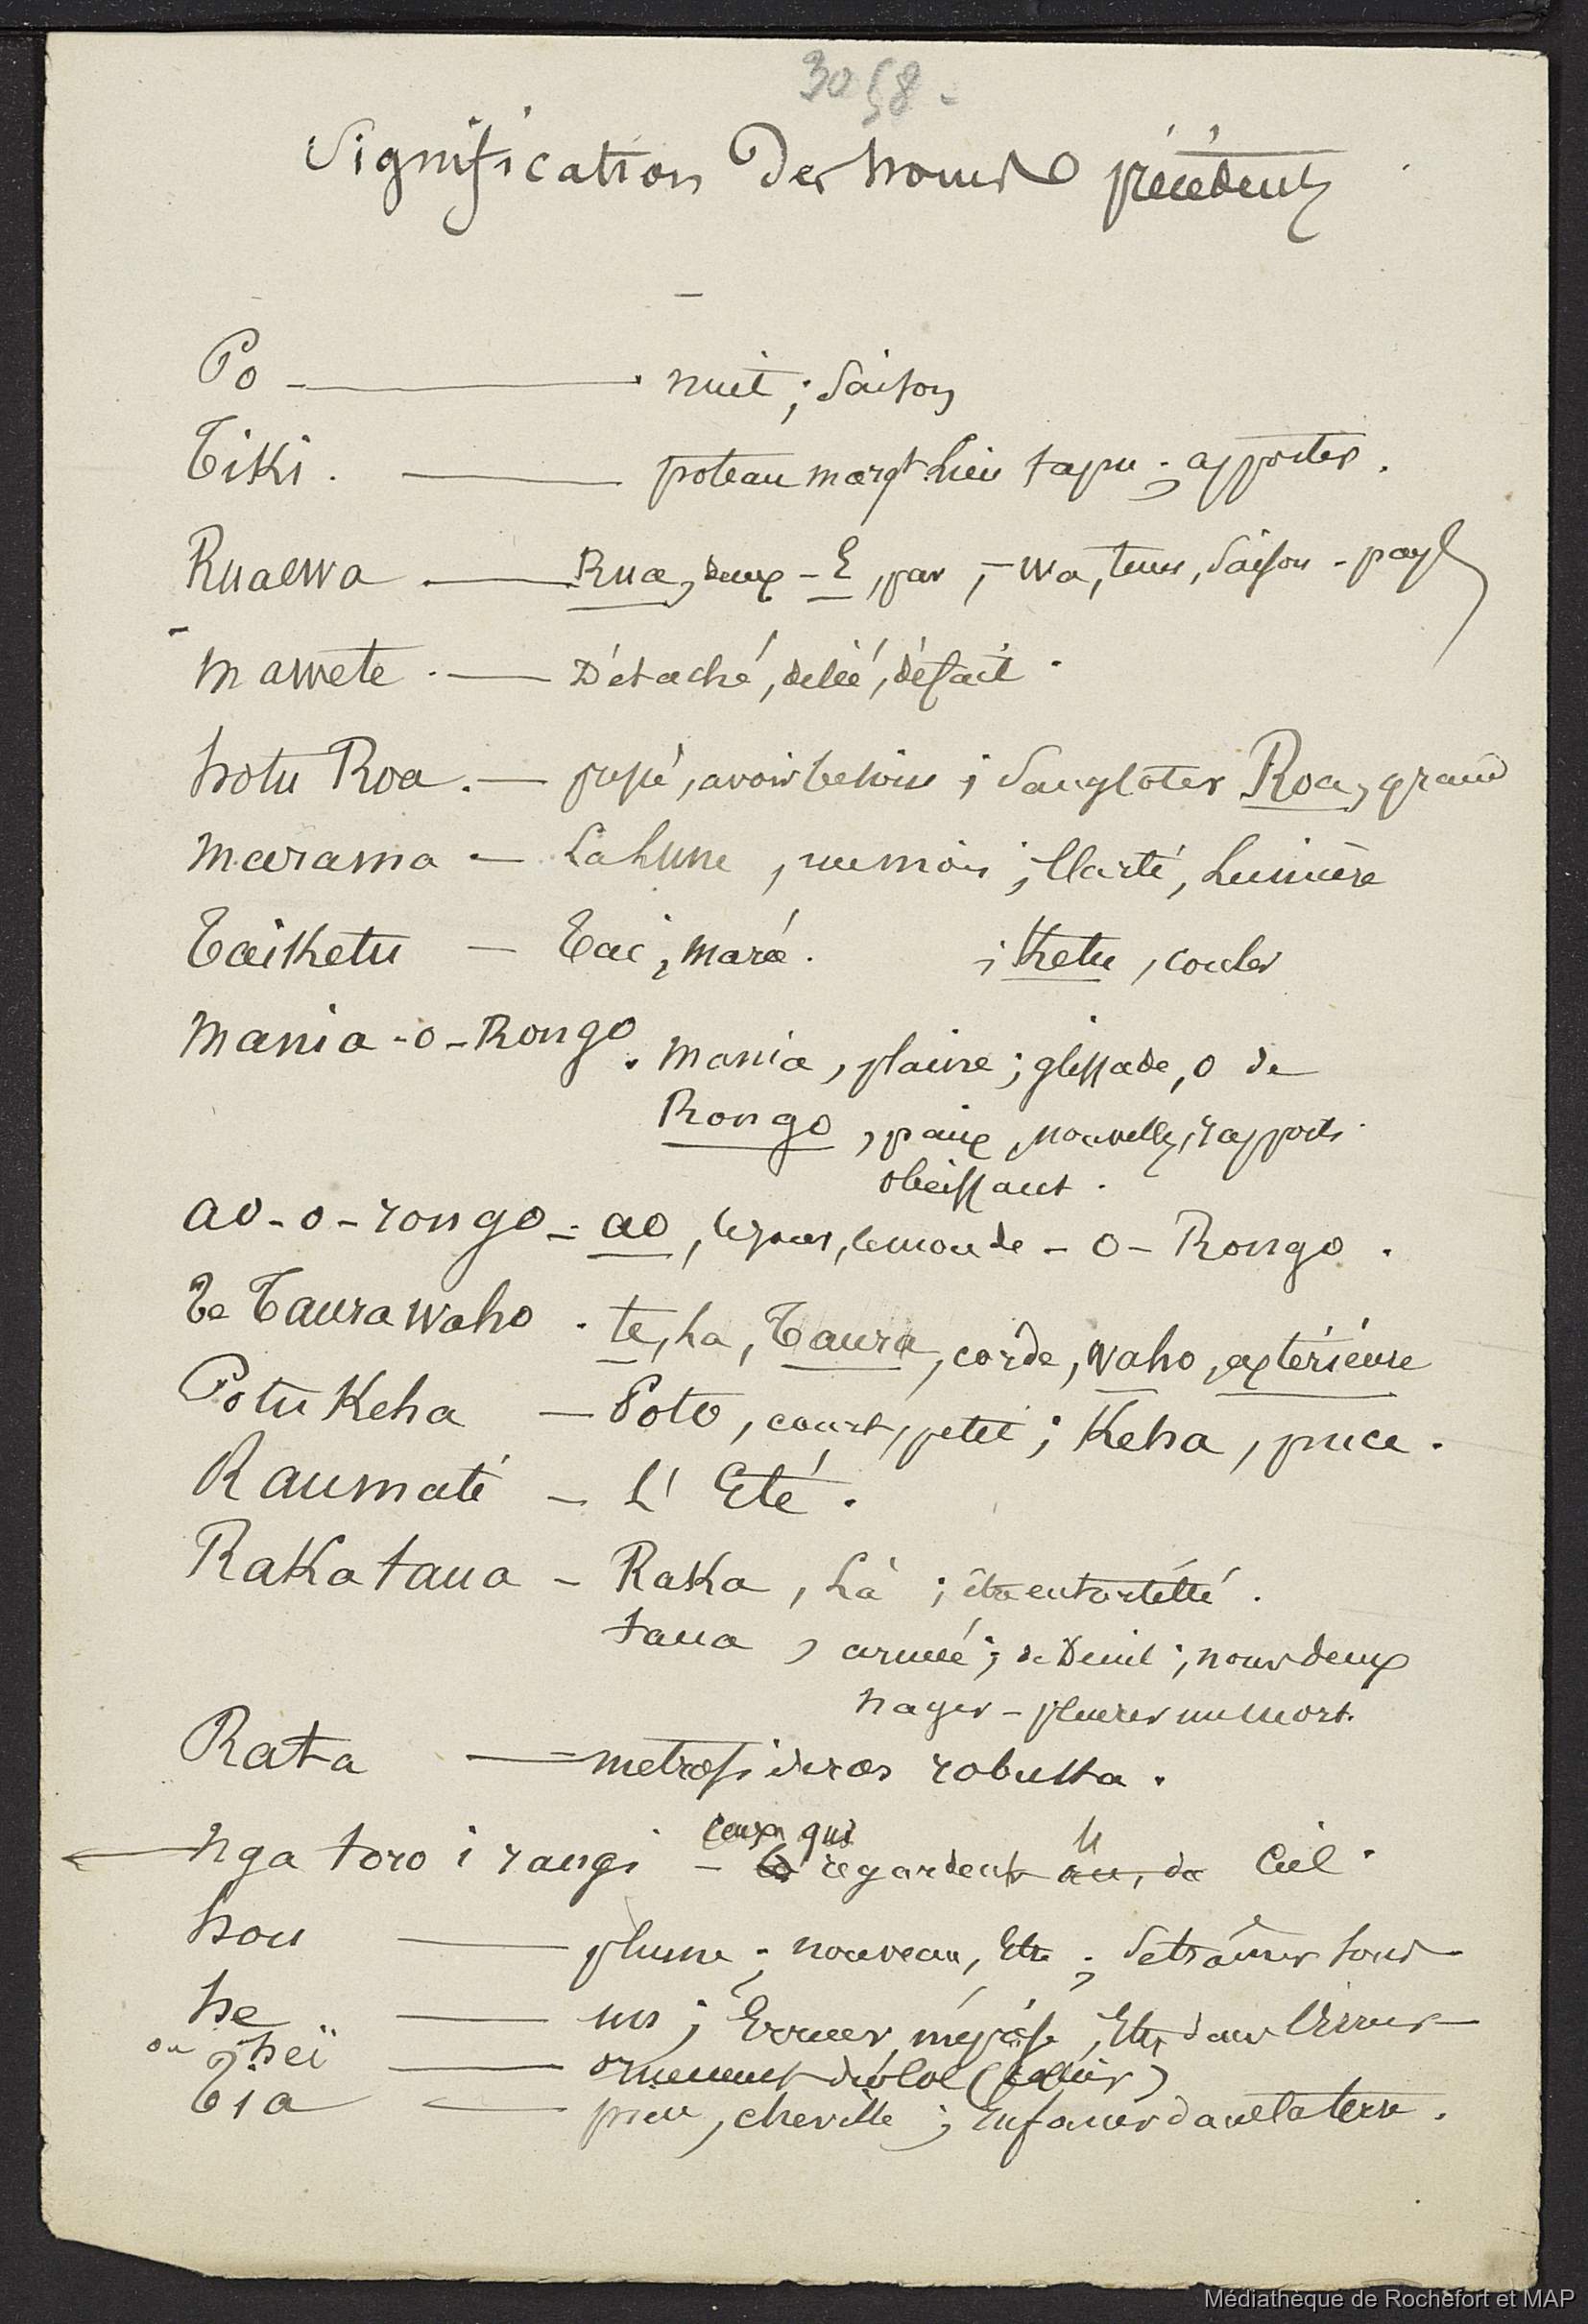 3058 -
Signification des noms précédents
Po — nuit ; saison
Tiki. — poteau marqt lieu tapu ; apporter.
Ruaewa — Rua, deux - E, par, - wa, tems, saison - pays
mawete. — Détaché, délié, défait.
hotu Roa. — avoir besoin ; sangloter Roa, grand
Marama — La Lune, un mois ; Clarté, Lumière
Taiketu — Tai, marée. ; Ketu, couler
Mania-o-Rongo. Mania, plaine ; glissade, o de
Rongo, paix, nouvelles, rapports
obéissant.
ao-o-rongo - ao, le jour, le monde - o - Rongo.
Te Taurawaho. te, La, Taura, corde, waho, extérieure
Potu Keha — Poto, court, petit ; Keha, puce.
Raumati — L'Eté.
Rakataua — Raka, Là ; être entortillé.
taua, armée ; de Deuil ; nous deux
nager - pleurer un mort.
Rata — metrosideros robusta.
Ceux qui
nga toro i rangi — regardent au, de le Ciel.
hou — plume ; nouveau, Etre ; se traîner sous
he — un ; Erreur, méprise, Etre dans l'Erreur
ou hei — ornement du col (collier)
Tia — pieu, cheville ; Enfoncer dans la terre.
Médiathèque de Rochefort et MAP